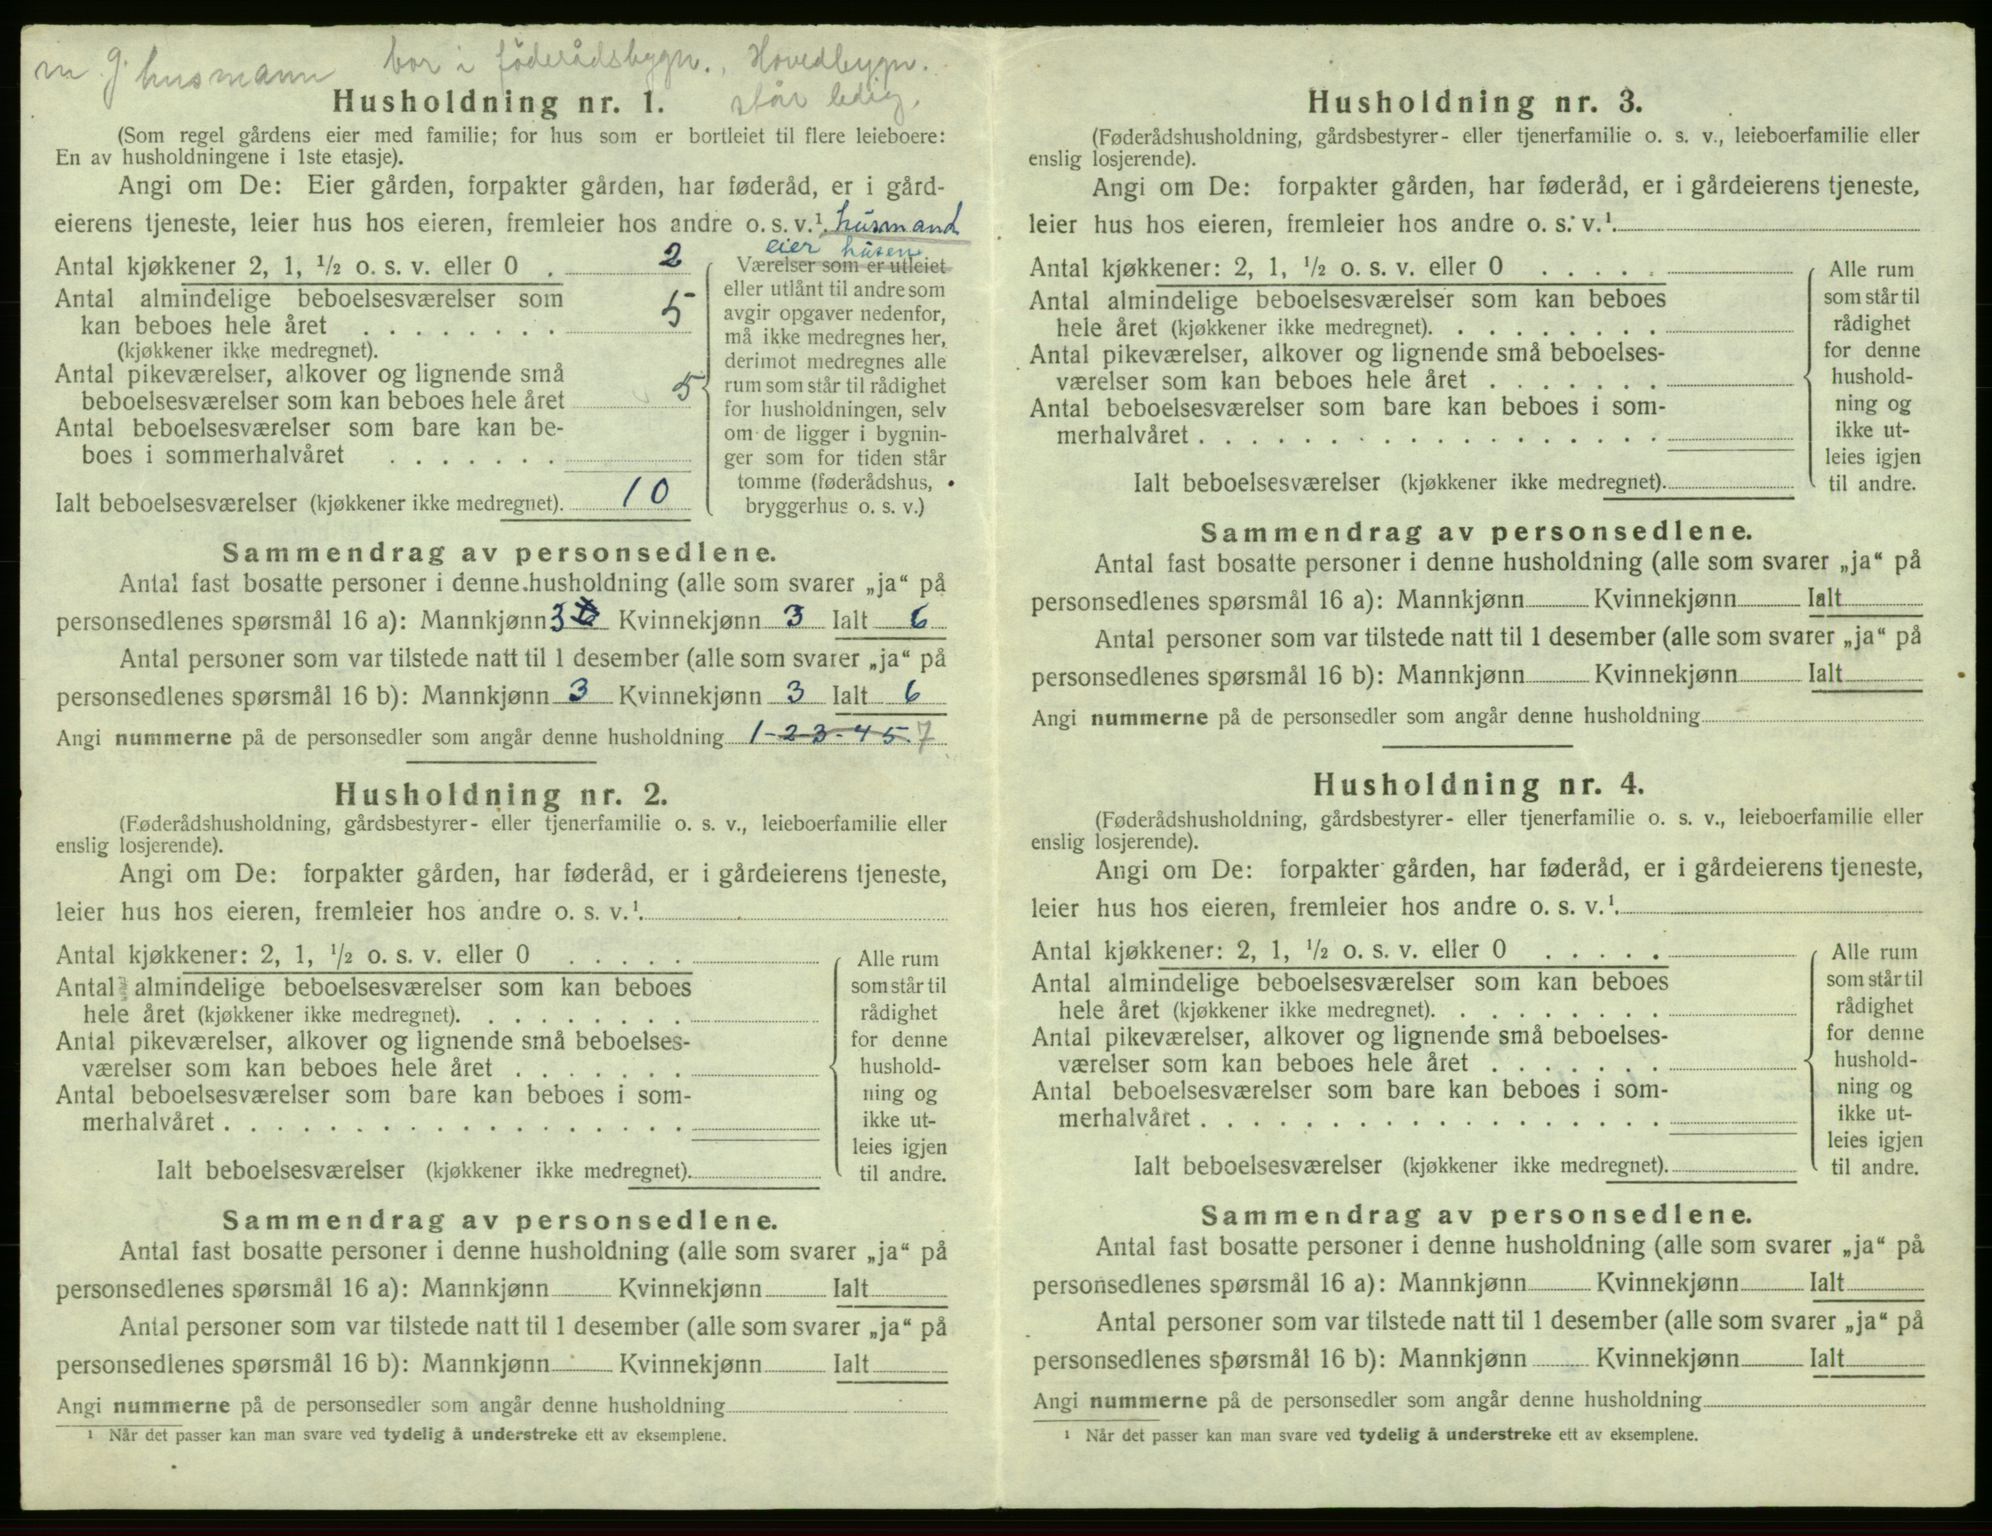 m. g. husmann bor i föderådsbygn., Hovedbygn.
står ledig.
Husholdning nr. 1.
(Som regel gårdens eier med familie; for hus som er bortleiet til flere leieboere:
En av husholdningene i 1ste etasje).
Angi om De: Eier gården, forpakter gården, har føderåd, er i gård-
eierens tjeneste, leier hus hos eieren, fremleier hos andre o. s. v.¹. husmand
eier husen
Antal kjøkkener 2, 1, ½ o. s. v. eller 0 . 2
Antal almindelige beboelsesværelser som
kan beboes hele året . . . . . . . . 5
(kjøkkener ikke medregnet).
Antal pikeværelser, alkover og lignende små
beboelsesværelser som kan beboes hele året 5
Antal beboelsesværelser som bare kan be-
boes i sommerhalvåret . . . . . . .
Ialt beboelsesværelser (kjøkkener ikke medregnet). 10
Værelser som er utleiet
eller utlånt til andre som
avgir opgaver nedenfor,
må ikke medregnes her,
derimot medregnes alle
rum som står til rådighet
for husholdningen, selv
om de ligger i bygnin-
ger som for tiden står
tomme (føderådshus,
bryggerhus o. s. v.)
Sammendrag av personsedlene.
Antal fast bosatte personer i denne husholdning (alle som svarer „ja“ på
personsedlenes spørsmål 16 a): Mannkjønn 3 Kvinnekjønn 3 Ialt 6
Antal personer som var tilstede natt til 1 desember (alle som svarer „ja“ på
personsedlenes spørsmål 16 b): Mannkjønn 3 Kvinnekjønn 3 Ialt 6
Angi nummerne på de personsedler som angår denne husholdning 1-2-3-4-5. 7
Husholdning nr. 2.
(Føderådshusholdning, gårdsbestyrer- eller tjenerfamilie o. s. v., leieboerfamilie eller
enslig losjerende).
Angi om De: forpakter gården, har føderåd, er i gårdeierens tjeneste,
leier hus hos eieren, fremleier hos andre o. s. v.¹.
Antal kjøkkener: 2, 1, ½ o. s. v. eller 0 . . . . .
Antal almindelige beboelsesværelser som kan beboes
hele året (kjøkkener ikke medregnet). . . . . . . . .
Antal pikeværelser, alkover og lignende små beboelses-
værelser som kan beboes hele året . . . . . . .
Antal beboelsesværelser som bare kan beboes i som-
merhalvåret . . . . . . . . . . . . . . . . . .
Ialt beboelsesværelser (kjøkkener ikke medregnet).
Alle rum
som står til
rådighet
for denne
hushold-
ning og
ikke ut-
leies igjen
til andre.
Sammendrag av personsedlene.
Antal fast bosatte personer i denne husholdning (alle som svarer „ja“ på
personsedlenes spørsmål 16 a): Mannkjønn Kvinnekjønn Ialt
Antal personer som var tilstede natt til 1 desember (alle som svarer „ja“ på
personsedlenes spørsmål 16 b): Mannkjønn Kvinnekjønn Ialt
Angi nummerne på de personsedler som angår denne husholdning
¹ Når det passer kan man svare ved tydelig å understreke ett av eksemplene.
Husholdning nr. 3.
(Føderådshusholdning, gårdsbestyrer- eller tjenerfamilie o. s. v., leieboerfamilie eller
enslig losjerende).
Angi om De: forpakter gården, har føderåd, er i gårdeierens tjeneste,
leier hus hos eieren, fremleier hos andre o. s. v.¹.
Antal kjøkkener: 2, 1, ½ o. s. v. eller 0 . . . . .
Antal almindelige beboelsesværelser som kan beboes
hele året (kjøkkener ikke medregnet). . . . . . . . .
Antal pikeværelser, alkover og lignende små beboelses-
værelser som kan beboes hele året . . . . . . .
Antal beboelsesværelser som bare kan beboes i som-
merhalvåret . . . . . . . . . . . . . . . . . .
Ialt beboelsesværelser (kjøkkener ikke medregnet).
Alle rum
som står til
rådighet
for denne
hushold-
ning og
ikke ut-
leies igjen
til andre.
Sammendrag av personsedlene.
Antal fast bosatte personer i denne husholdning (alle som svarer „ja“ på
personsedlenes spørsmål 16 a): Mannkjønn Kvinnekjønn Ialt
Antal personer som var tilstede natt til 1 desember (alle som svarer „ja“ på
personsedlenes spørsmål 16 b): Mannkjønn Kvinnekjønn Ialt
Angi nummerne på de personsedler som angår denne husholdning
Husholdning nr. 4.
(Føderådshusholdning, gårdsbestyrer- eller tjenerfamilie o. s. v., leieboerfamilie eller
enslig losjerende).
Angi om De: forpakter gården, har føderåd, er i gårdeierens tjeneste,
leier hus hos eieren, fremleier hos andre o. s. v.¹.
Antal kjøkkener: 2, 1, ½ o. s. v. eller 0 . . . . .
Antal almindelige beboelsesværelser som kan beboes
hele året (kjøkkener ikke medregnet). . . . . . . . .
Antal pikeværelser, alkover og lignende små beboelses-
værelser som kan beboes hele året . . . . . . .
Antal beboelsesværelser som bare kan beboes i som-
merhalvåret . . . . . . . . . . . . . . . . . .
Ialt beboelsesværelser (kjøkkener ikke medregnet).
Alle rum
som står til
rådighet
for denne
hushold-
ning og
ikke ut-
leies igjen
til andre.
Sammendrag av personsedlene.
Antal fast bosatte personer i denne husholdning (alle som svarer „ja“ på
personsedlenes spørsmål 16 a): Mannkjønn Kvinnekjønn Ialt
Antal personer som var tilstede natt til 1 desember (alle som svarer „ja“ på
personsedlenes spørsmål 16 b): Mannkjønn Kvinnekjønn Ialt
Angi nummerne på de personsedler som angår denne husholdning
¹ Når det passer kan man svare ved tydelig å understreke ett av eksemplene.